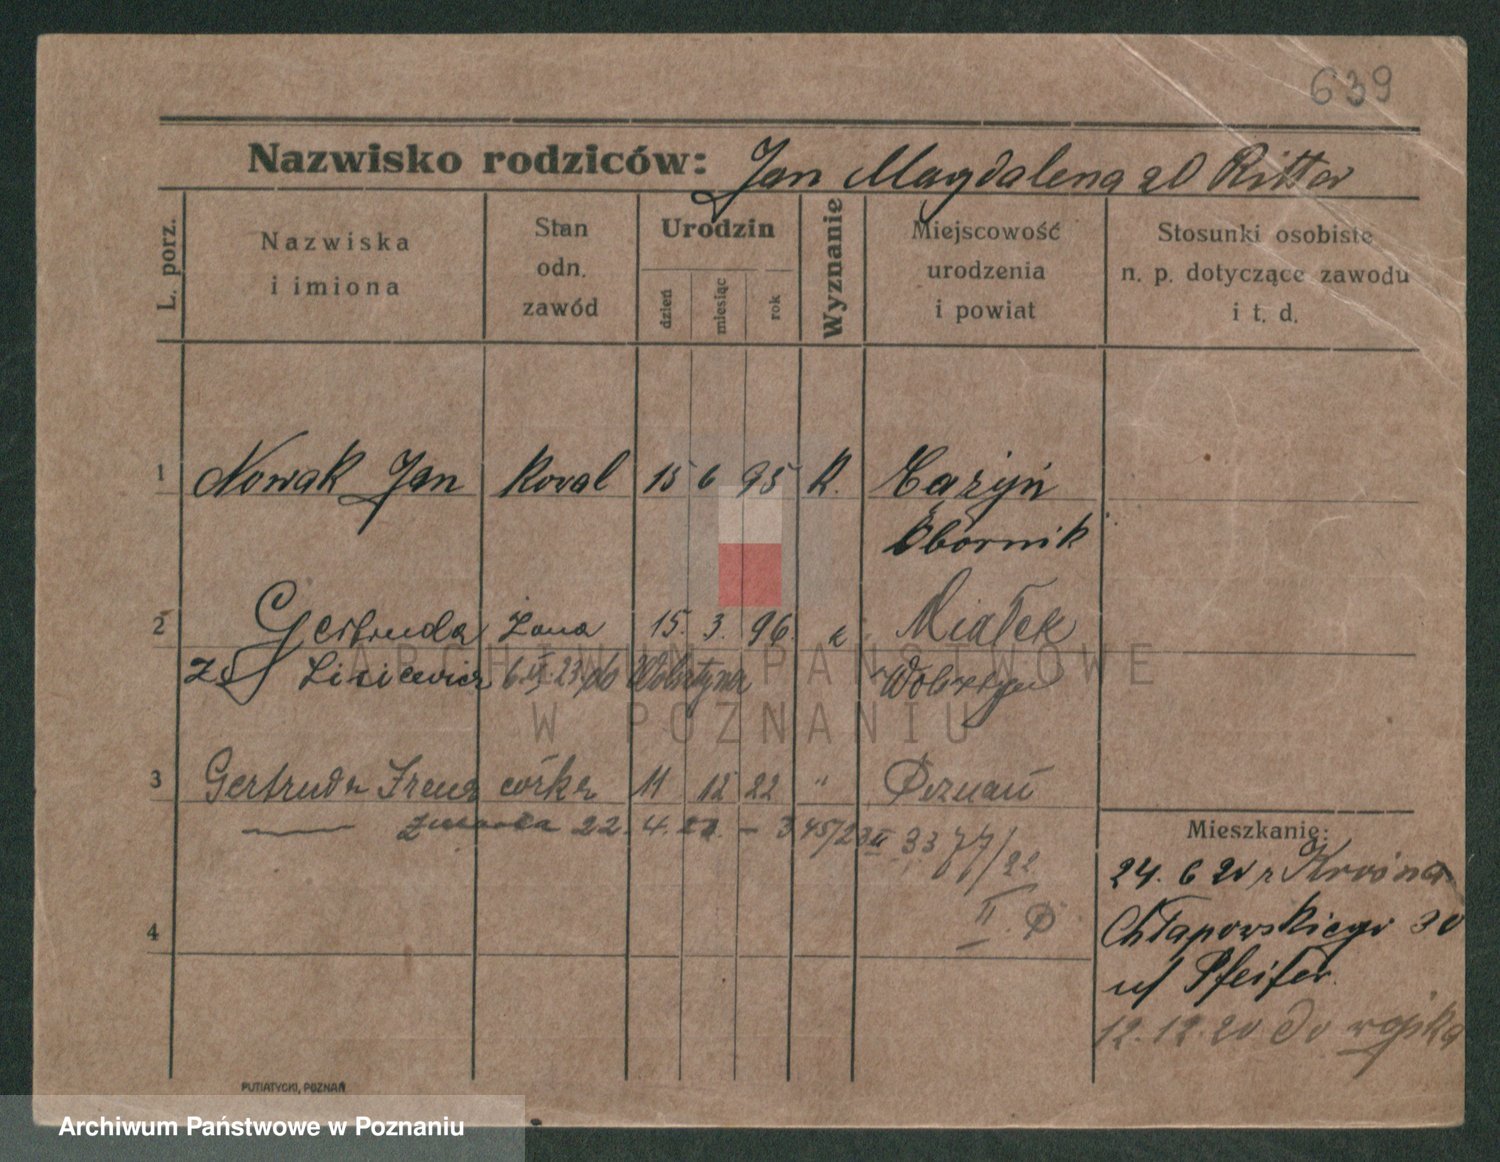 639
Nazwisko rodziców: Jan Magdalena zd Ritter
L. porz.
Nazwiska i imiona
Stan odn. zawód
Urodzin
dzień miesiąc rok
Wyznanie
Miejscowość urodzenia i powiat
Stosunki osobiste n. p. dotyczące zawodu i t. d.
1 Nowak Jan Koval 15 6 95 K.
Obornik
2 Gertruda żona 15. 3. 96. k Miałek
zd Lisiewicz 6. 23. do Wolsztyna Wolsztyn
3 Gertruda Irena córka 11 12 22 " Poznań
zmarła 22. 4. 33 77/22
II
4
Mieszkanie:
24. 6 20 z
Chłapowskiego 30
u/ Pfeifer
12. 12. 20 do wojska
PUTIATYCKI, POZNAŃ
ARCHIWUM PAŃSTWOWE
W POZNANIU
Archiwum Państwowe w Poznaniu